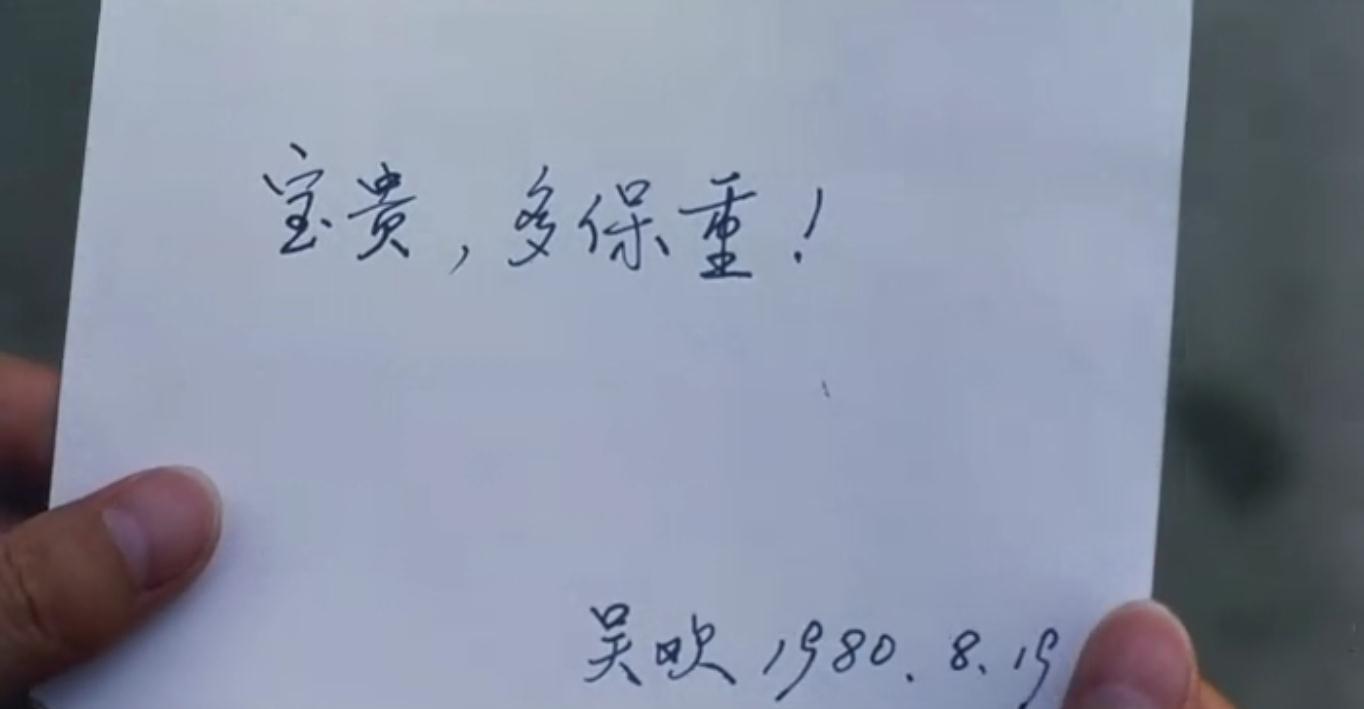 宝贵,多保重!
吴欧 1980.8.19